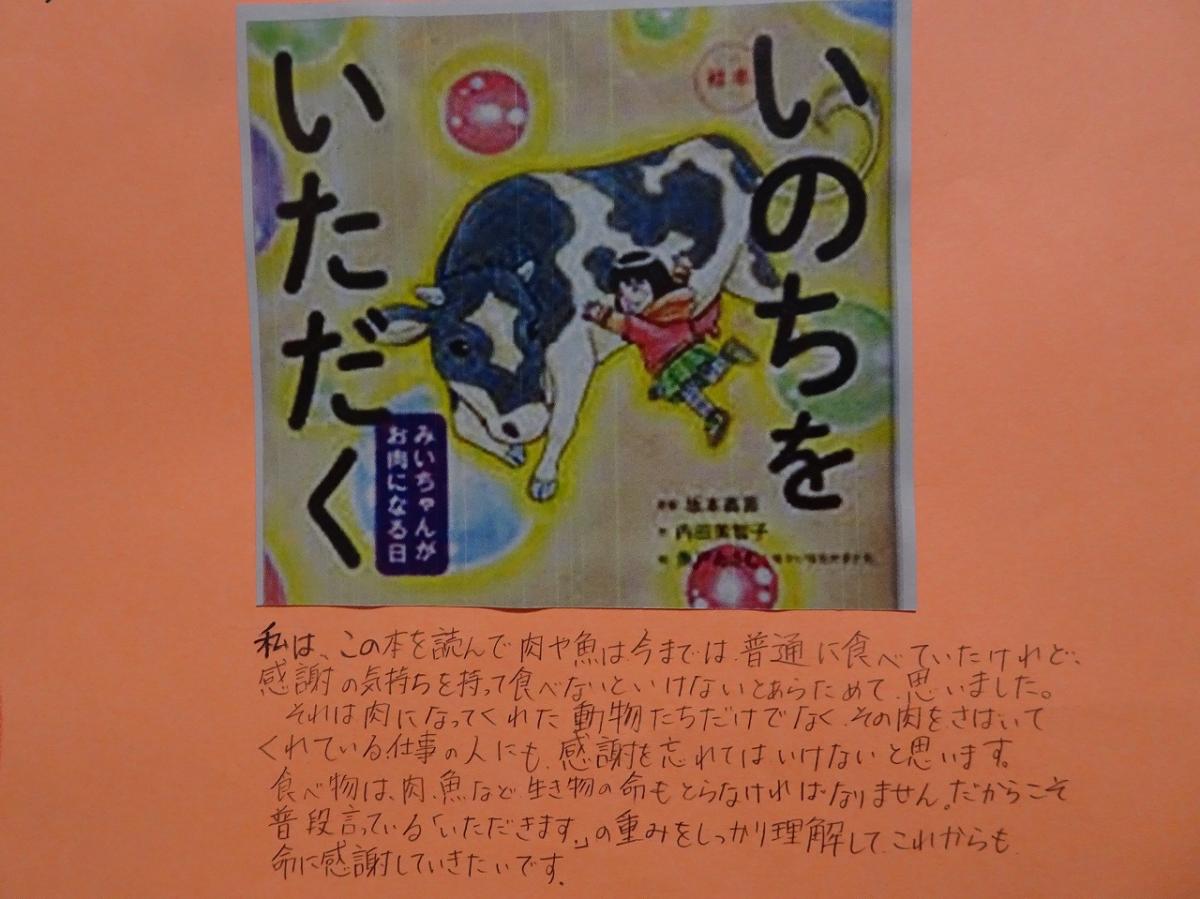 いのちを
いただく
みいちゃんが
お肉になる日
坂本義喜
内田美智子
私は、この本を読んで肉や魚は今までは普通に食べていたけれど、
感謝の気持ちを持って食べないといけないとあらためて思いました。
それは肉になってくれた動物たちだけでなく、その肉をさばいて
くれている仕事の人にも、感謝を忘れてはいけないと思います。
食べ物は、肉、魚など生き物の命もとらなければなりません。だからこそ
普段言っている「いただきます。」の重みをしっかり理解して、これからも
命に感謝していきたいです。